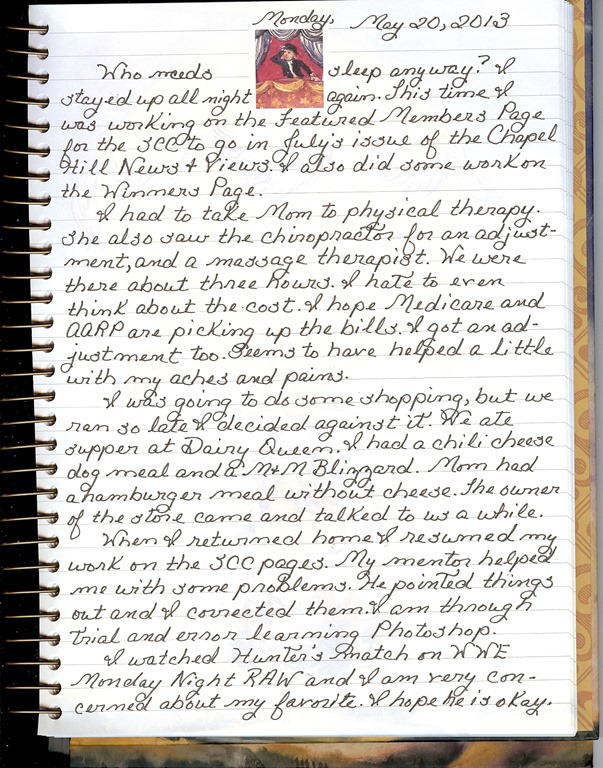 Monday, May 20, 2013
Who needs sleep anyway? I
stayed up all night again. This time I
was working on the Featured Members Page
for the SCC to go in July's issue of the Chapel
Hill News & Views. I also did some work on
the Winners Page.
I had to take Mom to physical therapy.
She also saw the chiropractor for an adjust-
ment, and a massage therapist. We were
there about three hours. I hate to even
think about the cost. I hope Medicare and
AARP are picking up the bills. I got an ad-
justment too. Seems to have helped a little
with my aches and pains.
I was going to do some shopping, but we
ran so late I decided against it. We ate
supper at Dairy Queen. I had a chili cheese
dog meal and a M&M Blizzard. Mom had
a hamburger meal without cheese. The owner
of the store came and talked to us a while.
When I returned home I resumed my
work on the SCC pages. My mentor helped
me with some problems. He pointed things
out and I corrected them. I am through
trial and error learning Photoshop.
I watched Hunter's match on WWE
Monday Night RAW and I am very con-
cerned about my favorite. I hope he is okay.